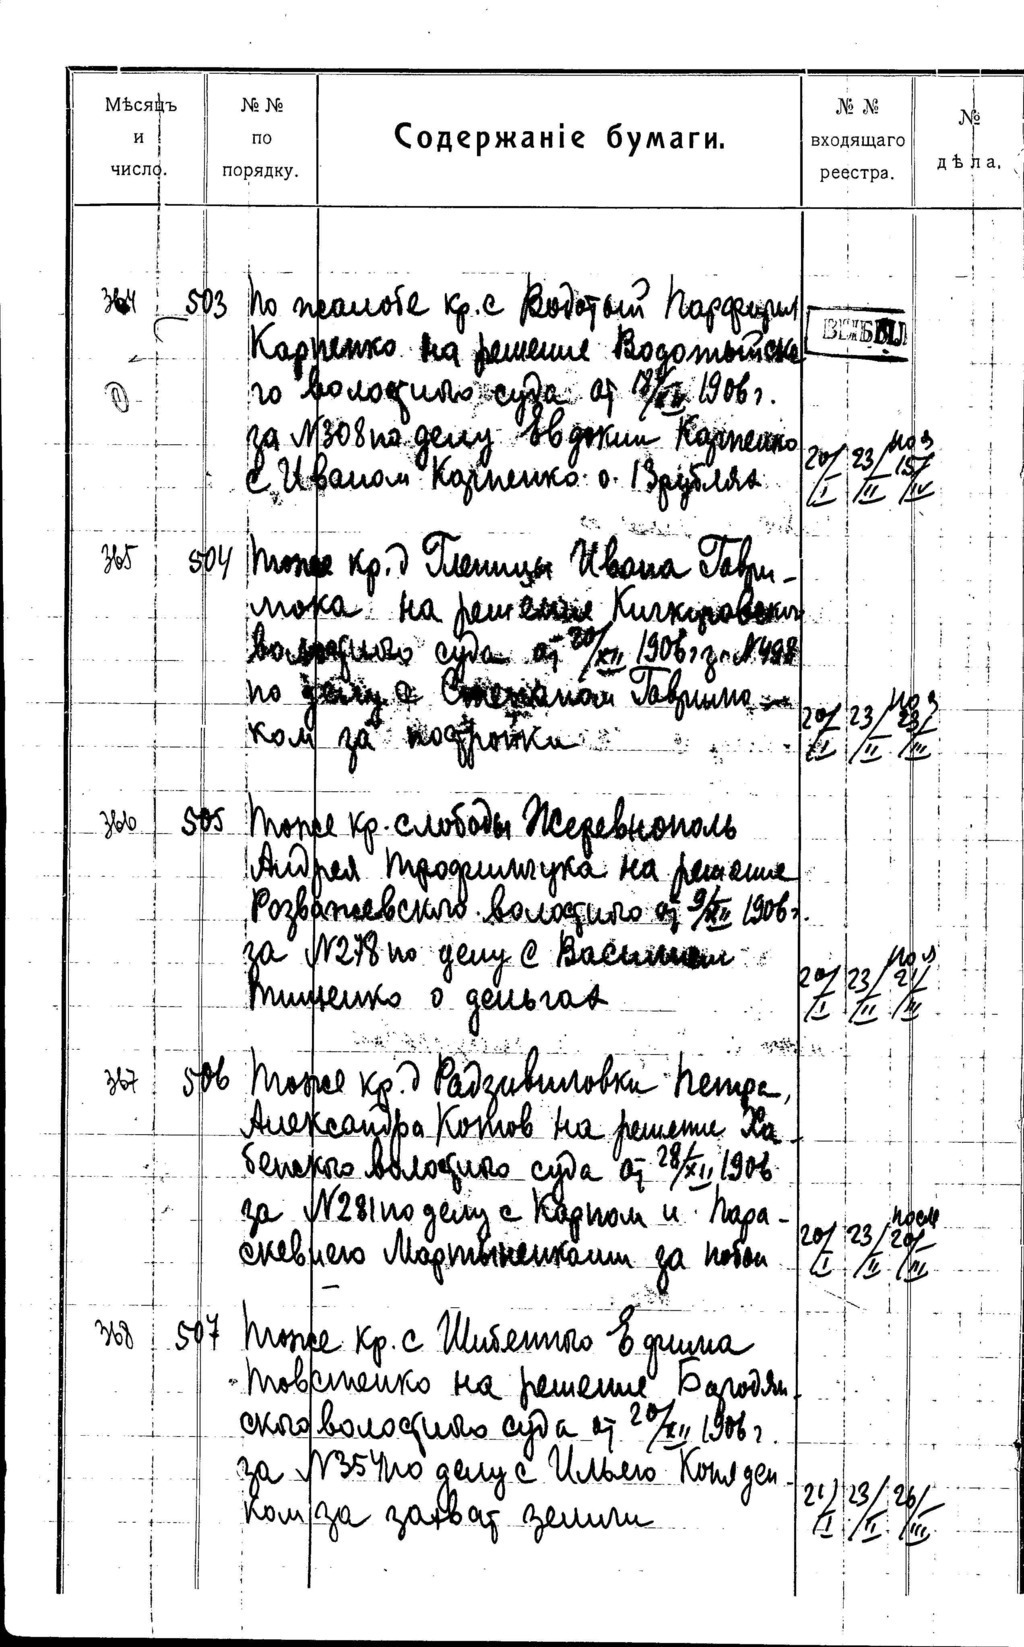 Мѣсяцъ и число.
№ № по порядку.
Содержаніе бумаги.
№ № входящаго реестра.
№ дѣла.
364 503 по жалобе кр. с Водотый Парфирия
Карпенко на решение Водотыйска
го волостного суда от 13/XII 1906 г.
за №308 по делу Евдокии Карпенко
с Иваном Карпенко о 13 рублях
20/I 23/II 15/IV
365 504 тоже кр. д Пленицы Ивана Гаври-
люка на решение
волостного суда от 20/XII 1906 г за №498
по делу с Степаном Гаврилю-
ком за постройки
20/I 23/II 23/III
366 505 тоже кр. слободы Жеревнополь
Андрея Трофимчука на решение
Розважевского волостного от 9/XII 1906 г.
за №278 по делу с Василием
Тищенко о деньгах
20/I 23/II 21/III
367 506 тоже кр. д Радзивиловки Петра,
Александра Котов на решение Ха-
бенского волостного суда от 28/XII 1906
за №281 по делу с Карпом и Пара-
скевиею Мартыненками за побои
20/I 23/II после 20/III
368 507 тоже кр. с Шибенного Ефима
Товстенко на решение Бородян-
ского волостного суда от 20/XII 1906 г.
за №354 по делу с Ильею Коляден-
ком за захват земли
21/I 23/II 26/III